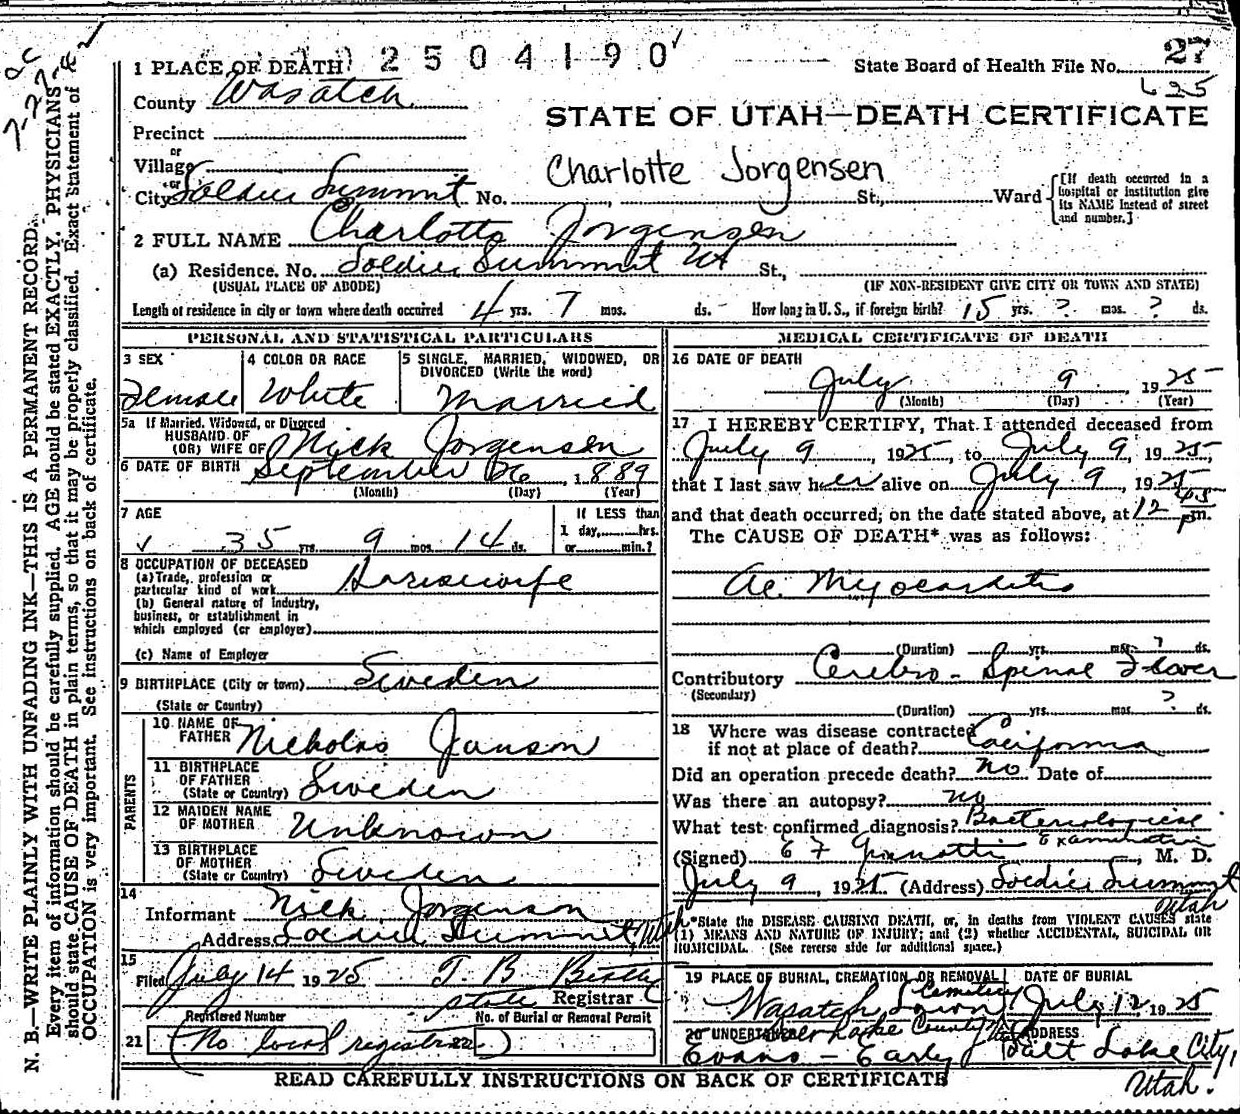 2504190
1 PLACE OF DEATH
State Board of Health File No. 27
625
County Wasatch
STATE OF UTAH—DEATH CERTIFICATE
Precinct
or
Village
or
City Soldier Summit No. St., Ward
Charlotte Jorgensen
[If death occurred in a hospital or institution give its NAME instead of street and number.]
2 FULL NAME Charlotte Jorgensen
(a) Residence. No. Soldier Summit Ut St.,
(USUAL PLACE OF ABODE) (IF NON-RESIDENT GIVE CITY OR TOWN AND STATE)
Length of residence in city or town where death occurred 4 yrs. 7 mos. ds. How long in U.S., if foreign birth? 15 yrs. ? mos. ? ds.
PERSONAL AND STATISTICAL PARTICULARS
3 SEX
Female
4 COLOR OR RACE
White
5 SINGLE, MARRIED, WIDOWED, OR DIVORCED (Write the word)
Married
5a If Married, Widowed, or Divorced
HUSBAND OF
(OR) WIFE OF Nick Jorgensen
6 DATE OF BIRTH September 26, 1889
(Month) (Day) (Year)
7 AGE
35 yrs. 9 mos. 14 ds.
If LESS than
1 day, hrs.
or min.?
8 OCCUPATION OF DECEASED
(a) Trade, profession or
particular kind of work Housewife
(b) General nature of Industry,
business, or establishment in
which employed (or employer)
(c) Name of Employer
9 BIRTHPLACE (City or town) Sweden
(State or Country)
PARENTS
10 NAME OF
FATHER Nicholas Janson
11 BIRTHPLACE
OF FATHER
(State or Country) Sweden
12 MAIDEN NAME
OF MOTHER Unknown
13 BIRTHPLACE
OF MOTHER
(State or Country) Sweden
14
Informant Nick Jorgenson
Address Soldier Summit, Utah
15
Filed July 14 1925 T. B. Beatty
State Registrar
Registered Number No. of Burial or Removal Permit
21 (No local registrar)
MEDICAL CERTIFICATE OF DEATH
16 DATE OF DEATH
July 9 1925
(Month) (Day) (Year)
17 I HEREBY CERTIFY, That I attended deceased from
July 9, 1925, to July 9, 1925,
that I last saw her alive on July 9, 1925
and that death occurred, on the date stated above, at 12 45 pm.
The CAUSE OF DEATH* was as follows:
Ac. Myocarditis
(Duration) yrs. mos. ? ds.
Contributory Cerebro-Spinal Fever
(Secondary)
(Duration) yrs. mos. ? ds.
18 Where was disease contracted
if not at place of death? California
Did an operation precede death? no Date of
Was there an autopsy? no
What test confirmed diagnosis? Bacteriological
Examination
(Signed) E F, M. D.
July 9, 1925 (Address) Soldier Summit
Utah
*State the DISEASE CAUSING DEATH, or, in deaths from VIOLENT CAUSES state
(1) MEANS AND NATURE OF INJURY; and (2) whether ACCIDENTAL, SUICIDAL OR
HOMICIDAL. (See reverse side for additional space.)
19 PLACE OF BURIAL, CREMATION OR REMOVAL DATE OF BURIAL
Cemetery
Wasatch Lawn July 12, 1925
Salt Lake County
20 UNDERTAKER ADDRESS
Evans - Early Salt Lake City,
Utah.
READ CAREFULLY INSTRUCTIONS ON BACK OF CERTIFICATE
N. B.—WRITE PLAINLY WITH UNFADING INK—THIS IS A PERMANENT RECORD.
Every item of information should be carefully supplied. AGE should be stated EXACTLY. PHYSICIANS
should state CAUSE OF DEATH in plain terms, so that it may be properly classified. Exact Statement of
OCCUPATION is very important. See instructions on back of certificate.